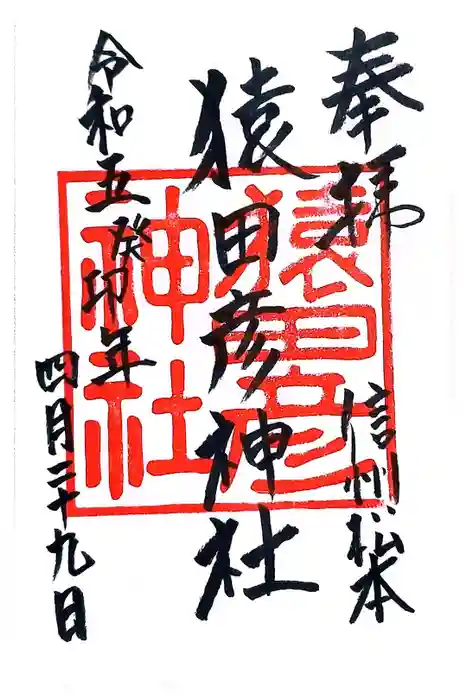 奉拝
信州松本
猿田彦神社
猿田彦
神社
令和五癸卯年
四月二十九日